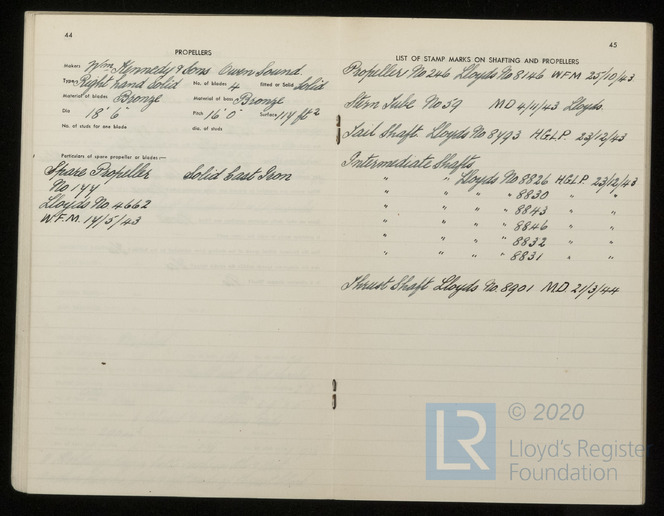 44
PROPELLERS
Makers Wm Kennedy & Sons Owen Sound.
Type Right hand Solid No. of blades 4 fitted or Solid Solid
Material of blades Bronze Material of boss Bronze
Dia 18' 6" Pitch 16' 0" Surface 114 ft 2
No. of studs for one blade dia. of studs
Particulars of spare propeller or blades:—
Spare Propeller Solid Cast Iron
No 144
Lloyds No 4662
W.F.M. 14/5/43
45
LIST OF STAMP MARKS ON SHAFTING AND PROPELLERS
Propeller No 246 Lloyds No 8146 W.F.M 25/10/43
Stern Tube No 59 MD 4/11/43 Lloyds
Tail Shaft Lloyds No 8493 H.G.L.P. 23/12/43
Intermediate Shafts
" " Lloyds No 8826 H.G.L.P. 23/12/43
" " " " 8830 " "
" " " " 8843 " "
" " " " 8846 " "
" " " " 8832 " "
" " " " 8831 " "
Thrust Shaft Lloyds No. 8901 M.D 21/3/44
LR
© 2020
Lloyd's Register
Foundation